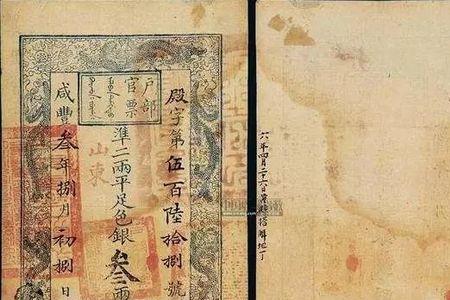 殿字第伍百陸拾捌號
户部
官票
準二兩平足色銀叁兩
山東
咸豐叁年捌月初捌日
六年四月二十六日 搭解地丁